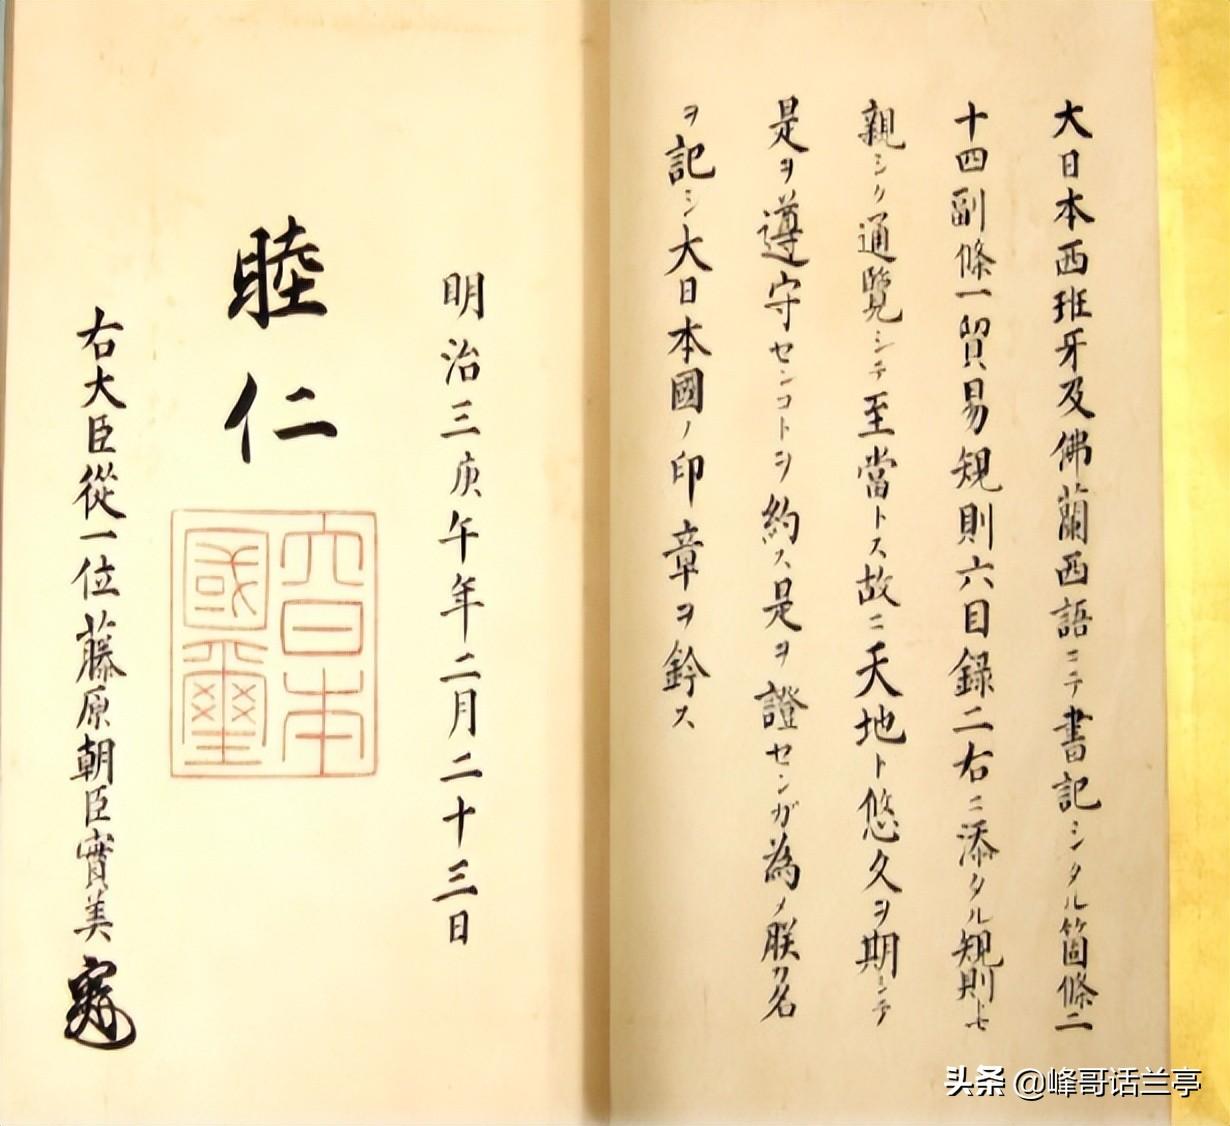 大日本西班牙及佛蘭西語ニテ書記シタル箇條二
十四副條一貿易規則六目録二右ニ添タル規則七
親シク通覽シテ至當トス故ニ天地ト悠久ヲ期シテ
是ヲ遵守センコトヲ約ス是ヲ證センガ為メ朕カ名
ヲ記シ大日本國ノ印章ヲ鈐ス
明治三庚午年二月二十三日
睦仁
大日本
國璽
右大臣從一位藤原朝臣實美
头条 @峰哥话兰亭